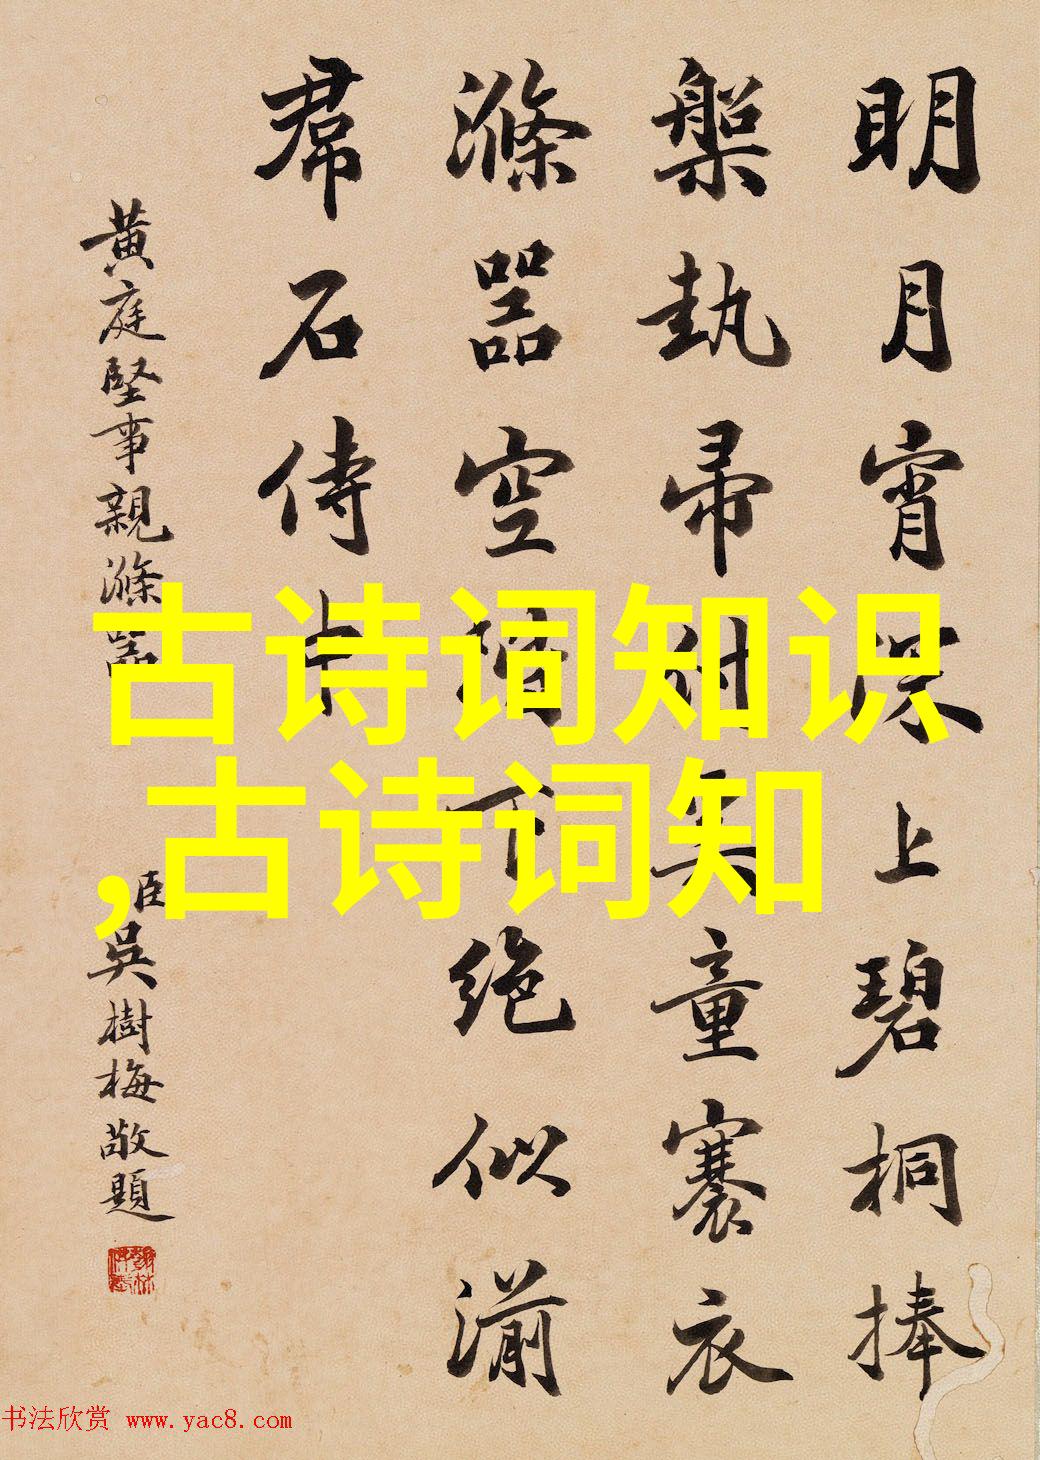 明月宵深上碧桐捧
槃執帚奚童褰衣
滌器空下絕似湔
帬石侍
黃庭堅事親滌器
臣吳樹梅敬題
古诗词知识
,古诗词知
书法欣赏 www.yac8.com